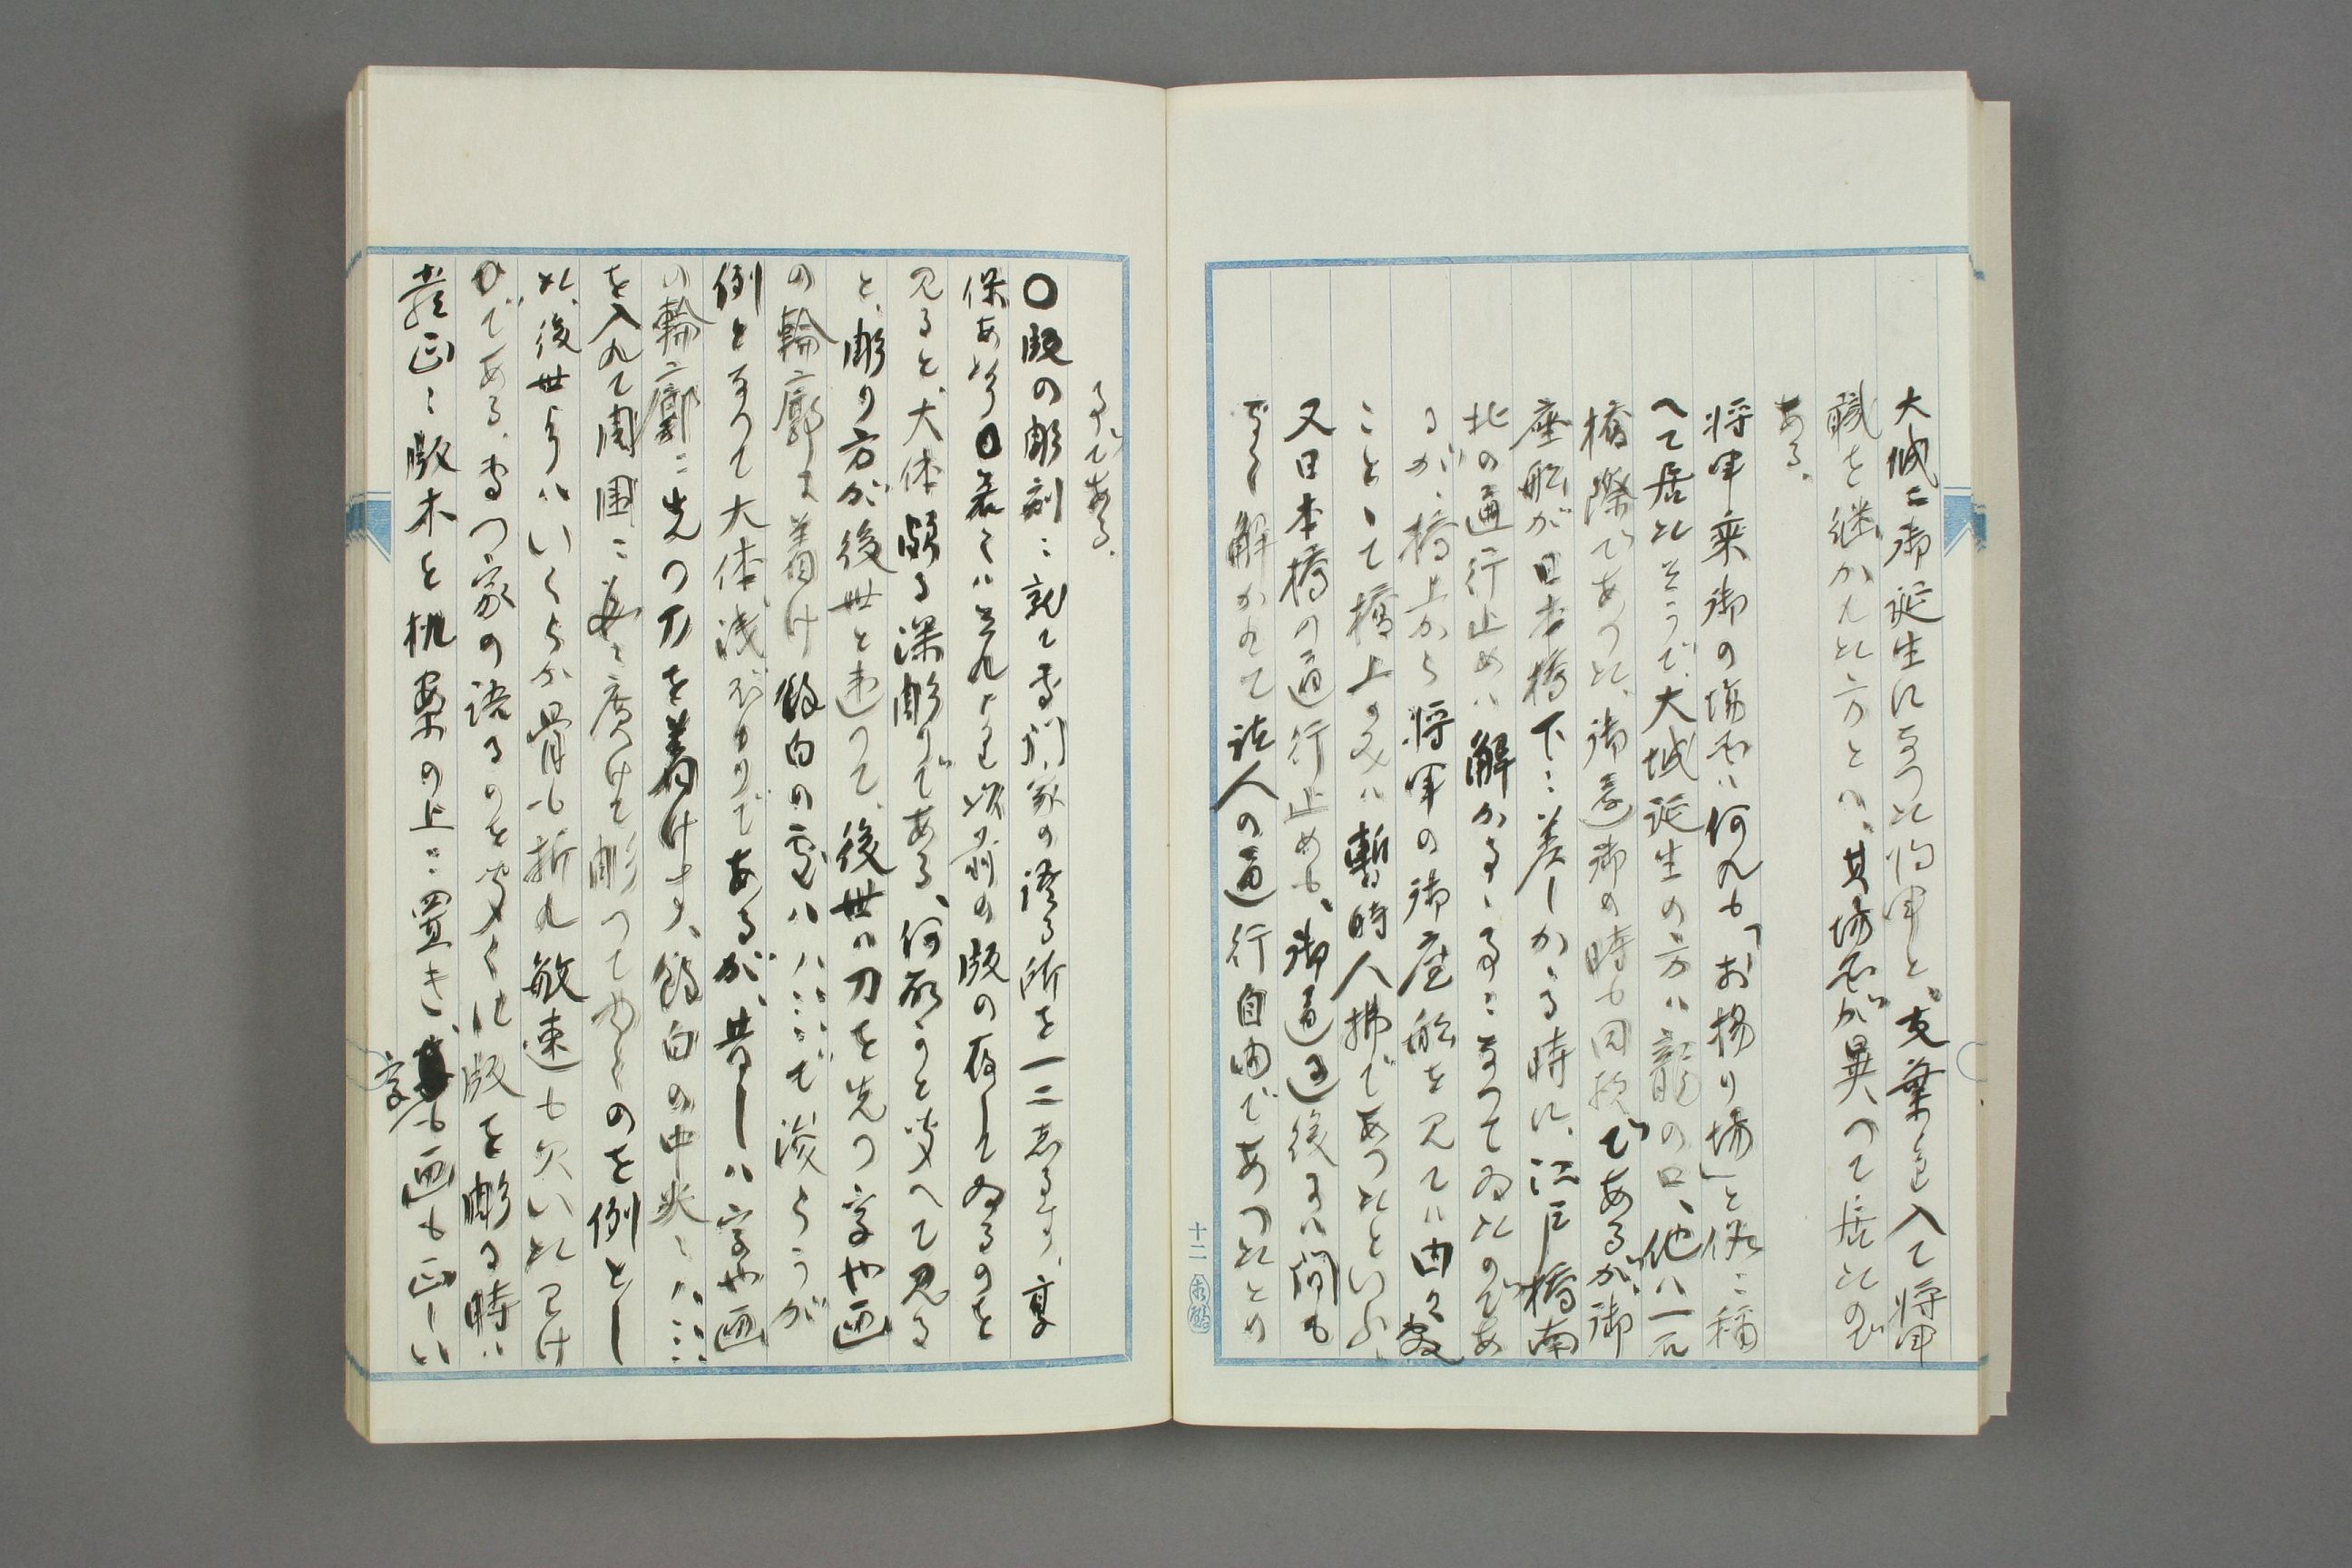 大城に御誕生になつた将軍と、支葉より入て将軍
職を継かれた方とハ、其場所が異つて居たので
ある。
将軍乗御の場所ハ何れも「お揚り場」と俗に称
へて居たさうで、大城誕生の方ハ龍の口、他ハ一石
橋際であつた、御還御の時も同様であるが、御
座船が日本橋下に差しかゝる時に、江戸橋南
北の通行止めハ解かるゝ事になつてゐたのであ
るが、橋上から将軍の御座船を見てハ由々敷
こととて橋上の又ハ暫時人払であつたといふ、
又日本橋の通行止めも、御通過後ハ間も
なく解かれて諸人の通行自由であつたとの
事である。
〇版の彫刻に就て専門家の語る所を一二志るす、享
保あたり〇若くハそれより以前の版の存してゐるのを
見ると、大体頗る深彫りである、何故かと考へて見る
と、彫り方が後世と違つて、後世ハ刀を先つ字や画
の輪廓に着け餘白の處ハ ハ で浚らうが
例となつて大体浅ざらりであるが、昔しハ字や画
の輪廓に先つ刀を着けます、餘白の中央に ハ
を入れて周囲に 広げて彫つてゆくのを例とし
た、後世よりハいくらか骨も折れ敏速も欠いたわけ
である、或る家の語るのを聞くに版を彫る時ハ
嚴正に版木を机案の上に置き、字も画も正しい
十二